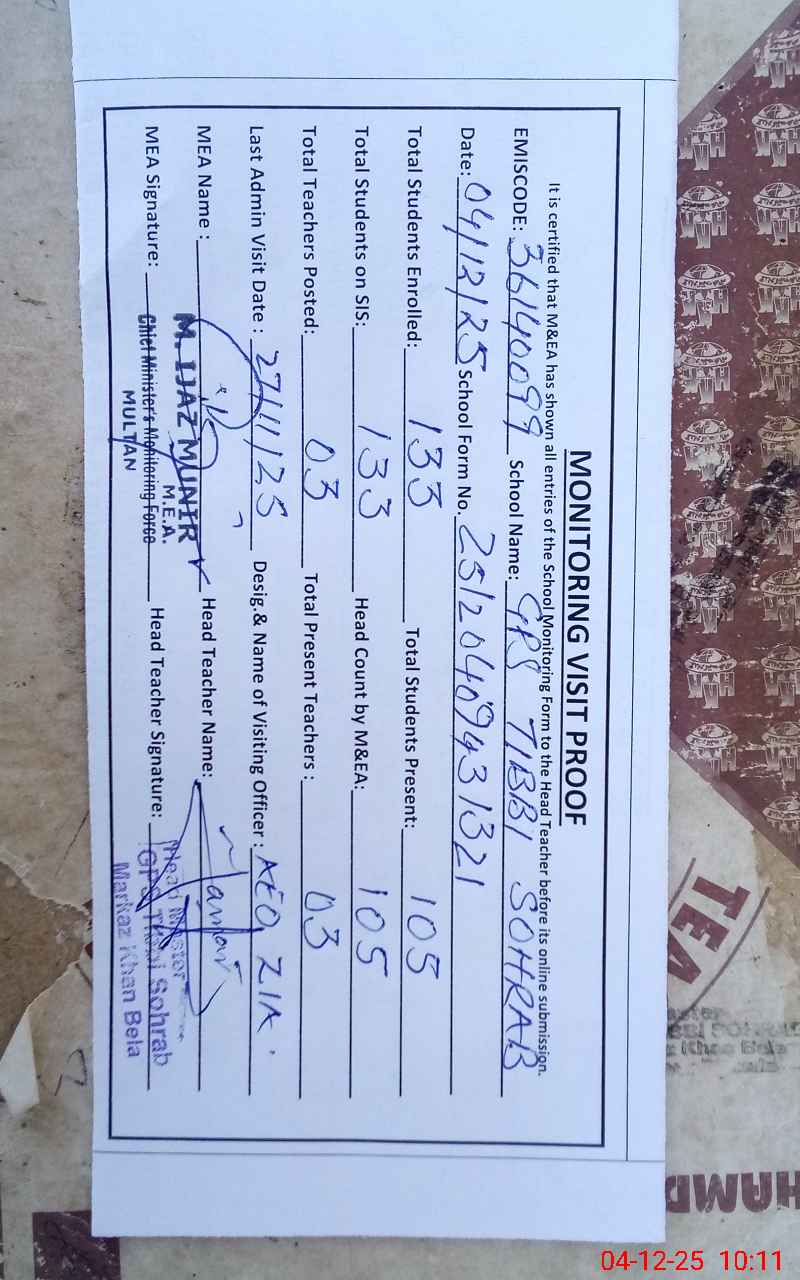 MONITORING VISIT PROOF
It is certified that M&EA has shown all entries of the School Monitoring Form to the Head Teacher before its online submission.
EMISCODE: 36140099 School Name: GPS TIBBI SOHRAB
Date: 04/12/25 School Form No. 25120409431321
Total Students Enrolled: 133 Total Students Present: 105
Total Students on SIS: 133 Head Count by M&EA: 105
Total Teachers Posted: 03 Total Present Teachers : 03
Last Admin Visit Date : 27/11/25 Desig.& Name of Visiting Officer : AEO, ZIA.
MEA Name : Head Teacher Name:
M. IJAZ MUNIR
M.E.A.
MEA Signature: Head Teacher Signature:
Chief Minister's Monitoring Force
MULTAN
Head Master
GPS Tibbi Sohrab
Markaz Khan Bela
TEA
SOHRAB
Khan Bela
HAMD
04-12-25 10:11